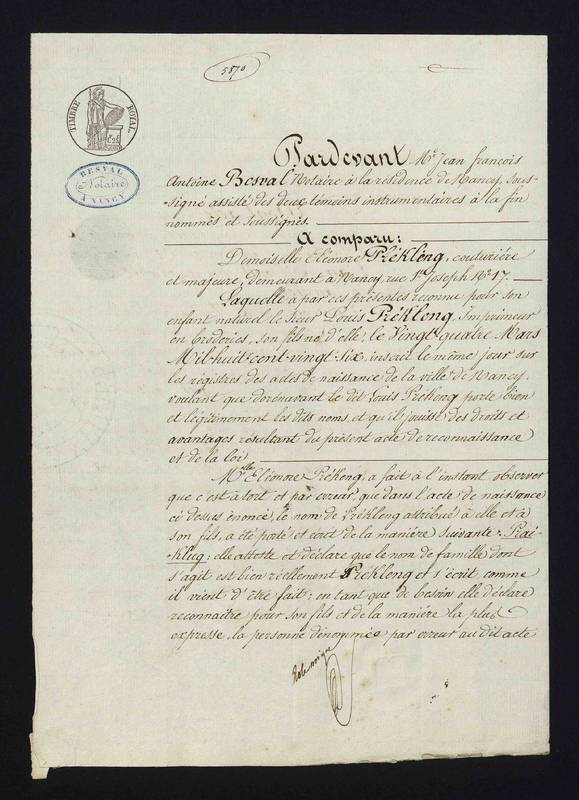 5870
TIMBRE ROYAL
1F.25
BESVAL
Notaire
A NANCY
Pardevant Me. Jean françois
Antoine Besval Notaire à la résidence de Nancy, sous-
-signé assisté des deux témoins instrumentaires à la fin
nommés et soussignés.
A comparu :
Demoiselle Eléonore Prékleng, couturière
et majeure, demeurant à Nancy, rue St. Joseph No. 17.
Laquelle à par ces présentes reconnu pour son
enfant naturel le sieur Louis Prékleng, Imprimeur
en broderies, son fils né d'elle, le Vingt-quatre Mars
Mil-huit-cent-vingt six, inscrit le même jour sur
les registres des actes de naissance de la ville de Nancy.
voulant que dorénavant le dit Louis Prékeng porte bien
et légitimement les dits noms, et qu'il jouisse des droits et
avantages résultant du présent acte de reconnaissance
et de la loi
Melle Eléonore Prékeng, a fait à l'instant observer
que c'est à tort et par erreur, que dans l'acte de naissance
ci dessus énoncé, le nom de Prékleng attribué à elle et à
son fils, a été porté et écrit de la manière suivante :
elle atteste et déclare que le nom de famille dont
s'agit est bien réellement Prékleng et s'écrit comme
il vient d'être fait ; en tant que de besoin elle déclare
reconnaître pour son fils et de la manière la plus
expresse, la personne dénommée par erreur au dit acte
Role unique